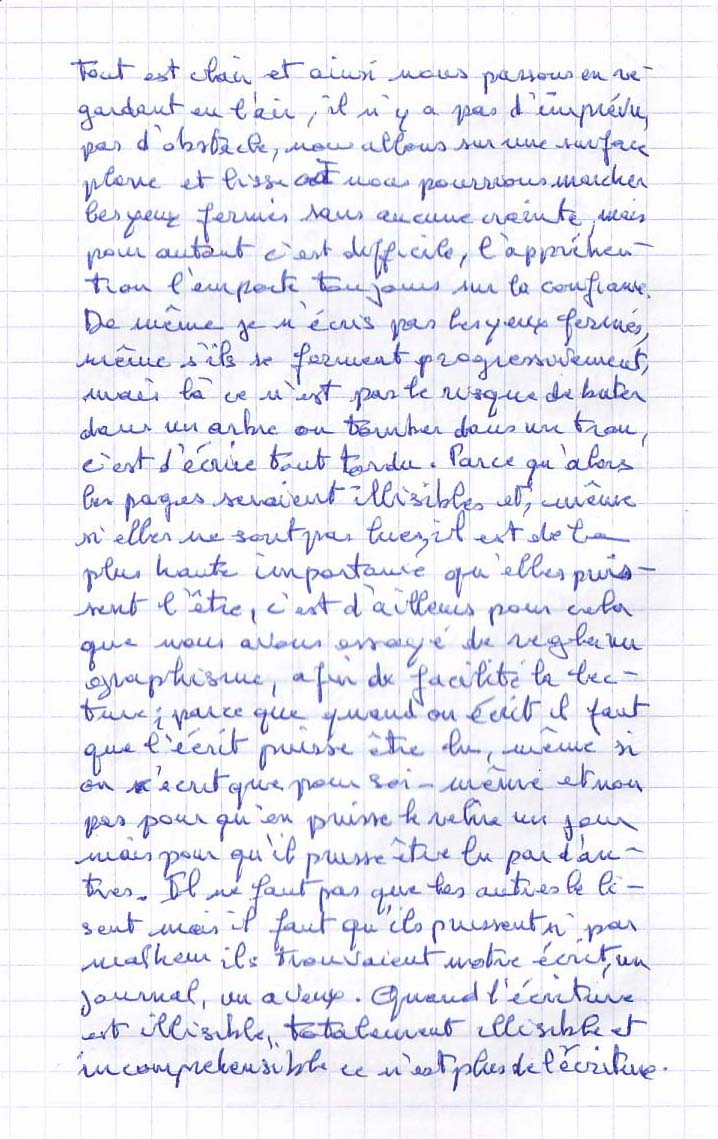 Tout est clair et ainsi nous passons en re-
gardant en l'air, il n'y a pas d'imprévu,
pas d'obstacle, nous allons sur une surface
plane et lisse nous pourrions marcher
les yeux fermés sans aucune crainte, mais
pour autant c'est difficile, l'appréhen-
tion l'emporte toujours sur la confiance.
De même je n'écris pas les yeux fermés,
même s'ils se ferment progressivement,
mais là ce n'est pas le risque de buter
dans un arbre ou tomber dans un trou,
c'est d'écrire tout tordu. Parce qu'alors
les pages seraient illisibles et, même
si elles ne sont pas lues, il est de la
plus haute importance qu'elles puis-
sent l'être, c'est d'ailleurs pour cela
que nous avons essayé de régler un
graphisme, afin de facilité la lec-
ture; parce que quand on écrit il faut
que l'écrit puisse être lu, même si
on n'écrit que pour soi-même et non
pas pour qu'on puisse le relire un jour
mais pour qu'il puisse être lu par d'au-
tres. Il ne faut pas que les autres le li-
sent mais il faut qu'ils puissent si par
malheur ils trouvaient notre écrit, un
journal, un aveux. Quand l'écriture
est illisible, totalement illisible et
incompréhensible ce n'est plus de l'écriture.